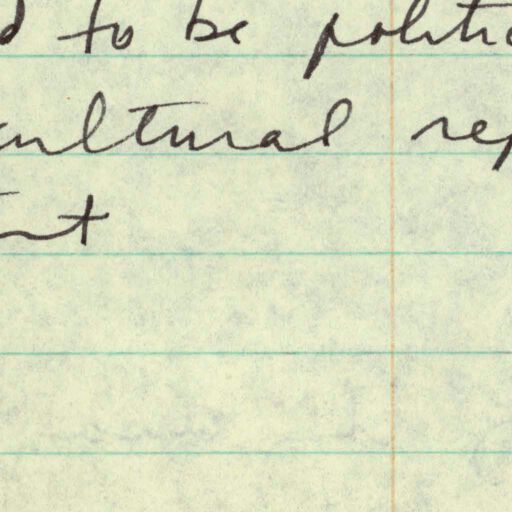 d to be politic
cultural rep
nt